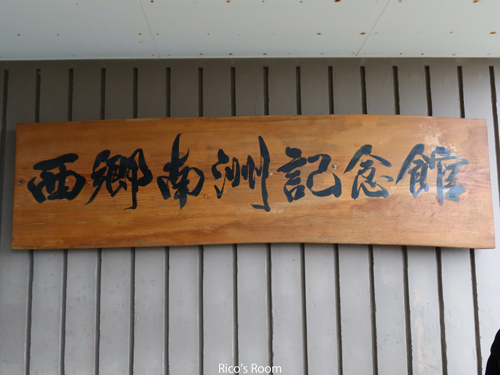 西郷南洲記念館
Rico's Room